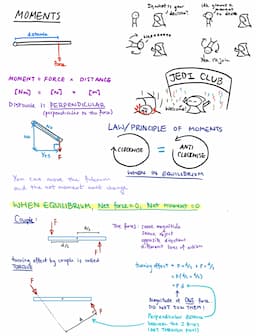 MOMENTS
distance
Force
MOMENT = FORCE × DISTANCE
[Nm] = [N] × [m]
DISTANCE IS PERPENDICULAR
(perpendicular to the force)
You join
JEDI CLUB
No
F
YES
F
LAW/PRINCIPLE OF MOMENTS
CLOCKWISE = ANTI CLOCKWISE
WHEN IN EQUILIBRIUM
You can move the fulcrum
and the net moment won't change
WHEN EQUILIBRIUM, Net force=0, Net moment=0
Couple:
F
d/2
d/2
F
The forces: same magnitude
same object
opposite direction
different lines of action
turning effect by couple is called
TORQUE
turning effect = F × d/2 + F × d/2
= F(d/2 + d/2)
= F d
Magnitude of ONE force
DO NOT SUM THEM!
Perpendicular distance
between the 2 forces
F
d
F